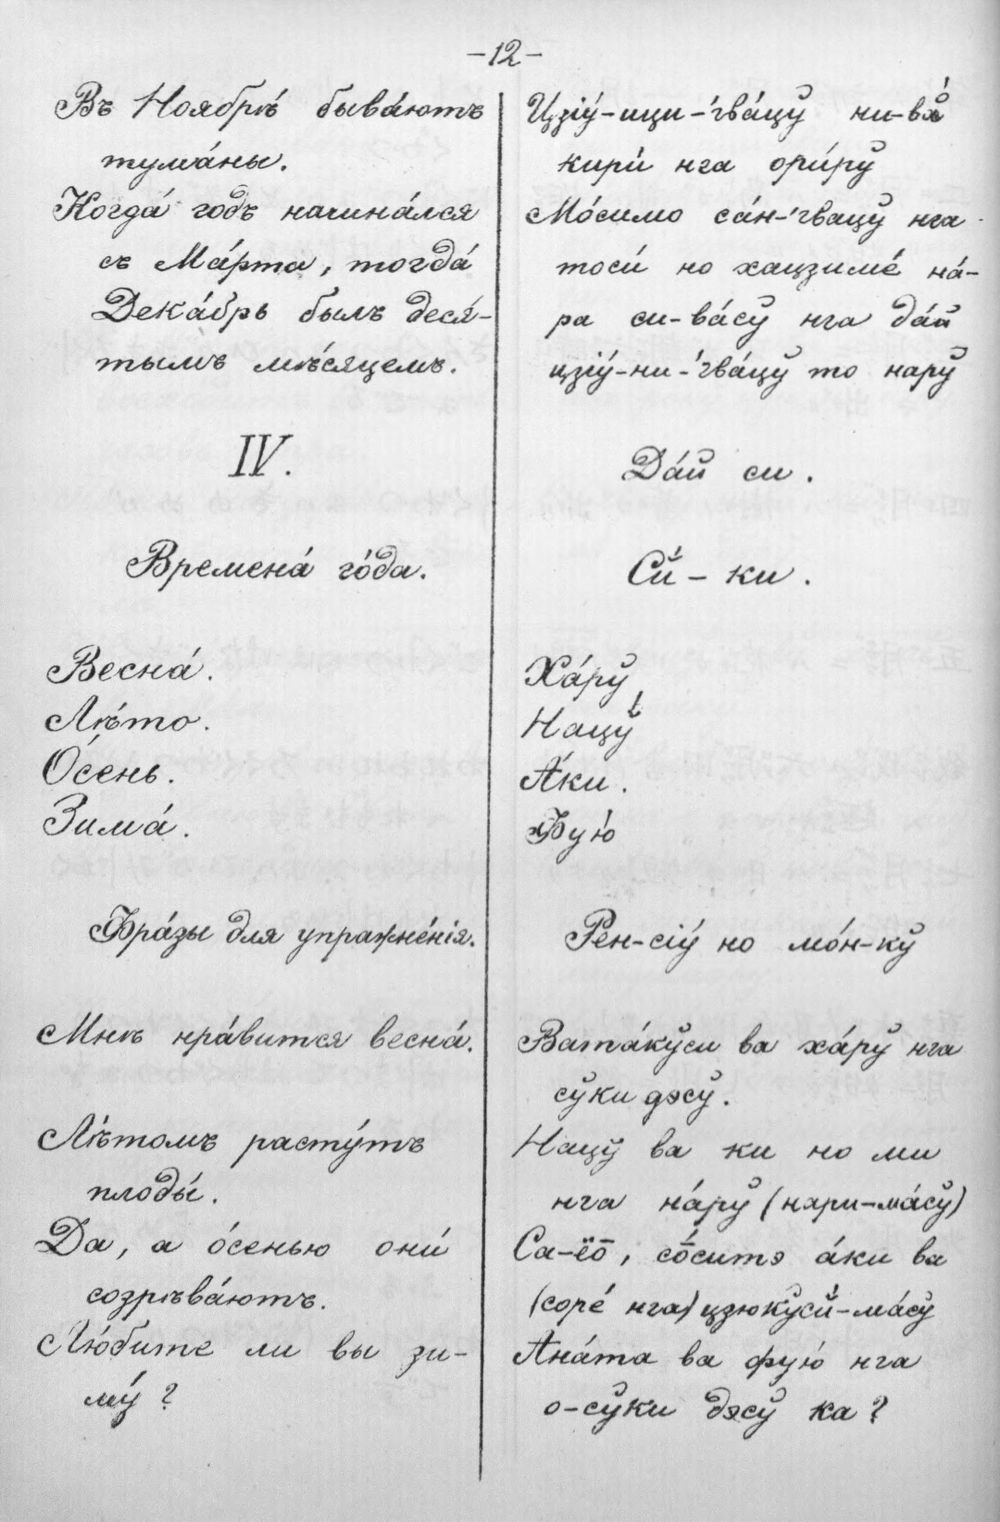 -12-
Въ Ноябрѣ́ быва́ютъ
тума́ны.
Когда́ годъ начина́лся
съ Ма́рта, тогда́
Дека́брь былъ деся́-
тымъ мѣ́сяцемъ.
IV.
Времена́ го́да.
Весна́.
Лѣ́то.
О́сень.
Зима́.
Фра́зы для упражне́нія.
Мнѣ нра́вится весна́.
Лѣ́томъ расту́тъ
плоды́.
Да, а о́сенью они́
созрѣва́ютъ.
Лю́бите ли вы зи-
му́?
Цзіу́-ици-'гва́цў ни-ва̊́
кири́ нга ори́рў
Мо́симо са́н-'гвацў нга
тоси́ но хацзиме́ на́-
ра си-ва́сў нга да́й
цзіу́-ни-'гва́цў то нарў
Да́й си.
Сй́-ки.
Ха́рў
Нацў́
А́ки.
Фую́
Рен-сіу́ но мо́н-кў
Вата́кўси ва ха́рў нга
сўки дэсў.
Нацў ва ки но ми
нга на́рў (нари-ма́сў)
Са-ёо̄, со̄́ситэ а́ки ва
(соре́ нга) цзюкўсй́-ма́сў
Ана́та ва фую́ нга
о-сўки дэсў ка?